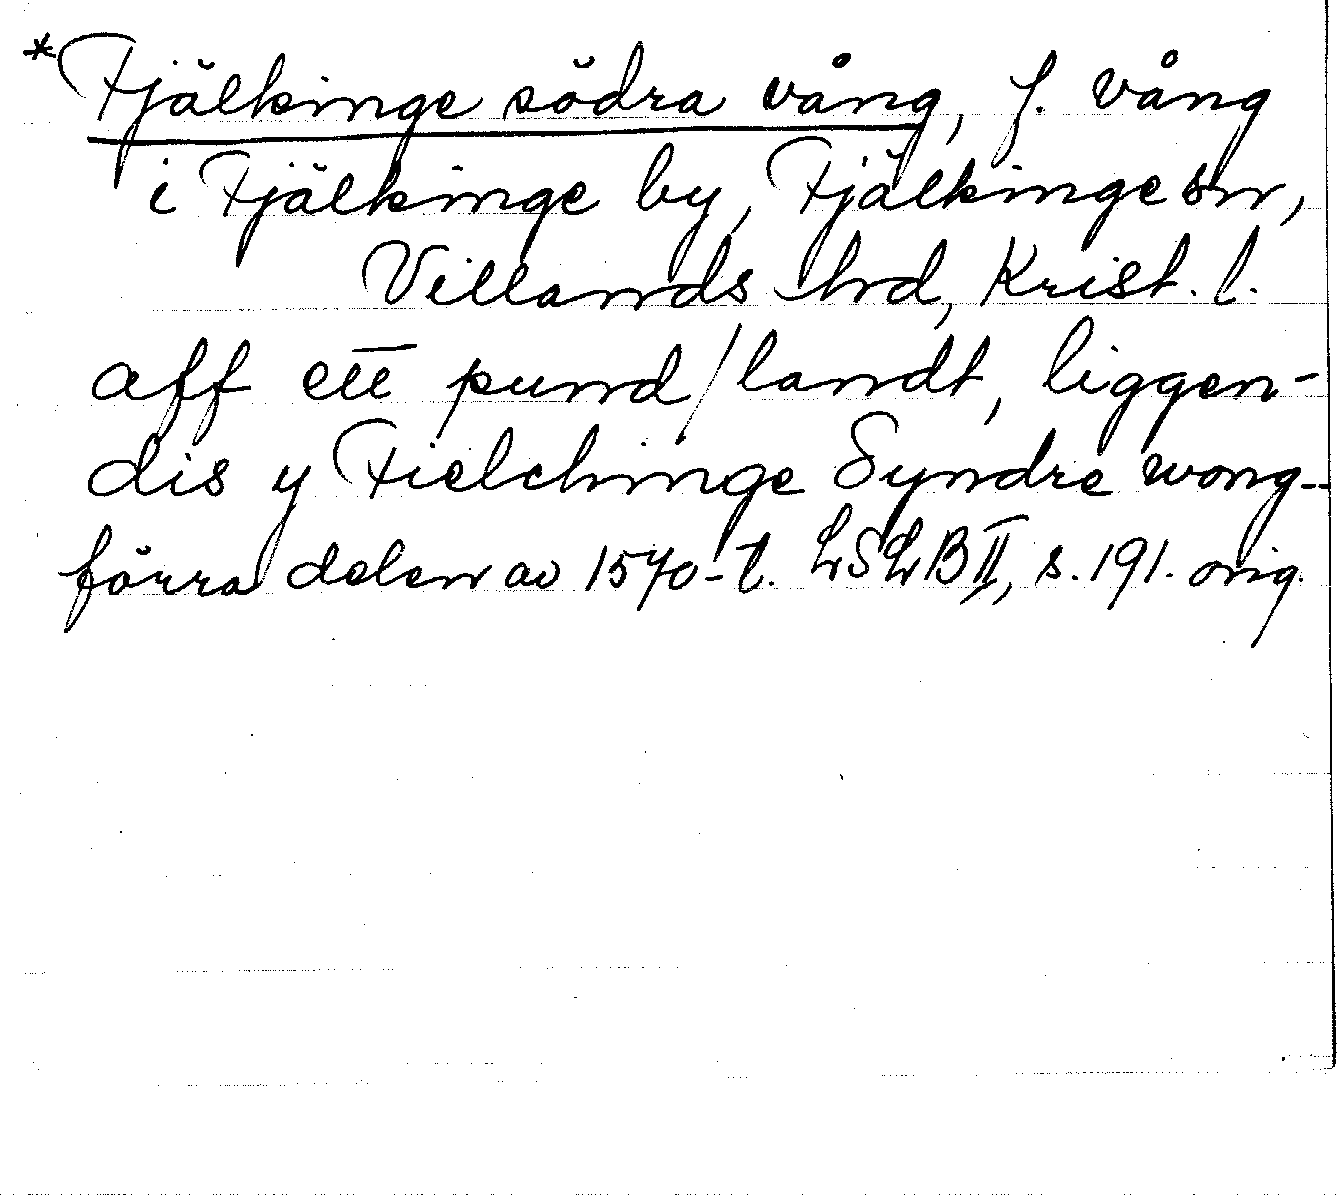 *Fjälkinge södra vång, f. vång
i Fjälkinge by, Fjälkinge sn,
Villands hd, Krist. l.
aff ett pund/landt, liggen-
dis y Fielchinge Syndre wong--
förra delen av 1570-t. LSLB II, s. 191. orig.